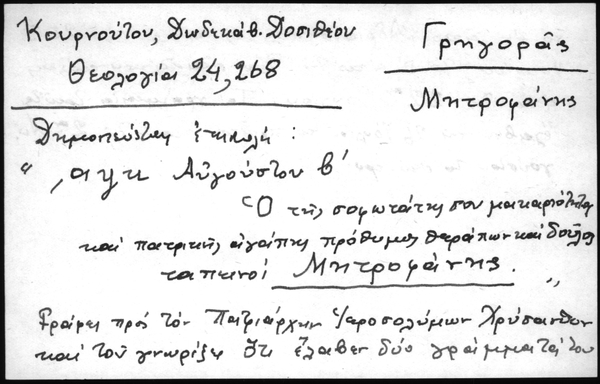 Κουρνούτου, Δωδεκάβ. Δοσιθέου
Θεολογία 24, 268
Γρηγοράς
Μητροφάνης
Δημοσιεύεται ἐπιστολή :
" ,αψκ Αὐγούστου β'
Ὁ τῆς σοφωτάτης σου μακαριότητος
καί πατρικῆς ἀγάπης πρόθυμος θεράπων καί δοῦλος
ταπεινός Μητροφάνης. "
Γράφει πρός τόν Πατριάρχην Ἱεροσολύμων Χρύσανθον
καί τοῦ γνωρίζει ὅτι ἔλαβεν δύο γράμματά του